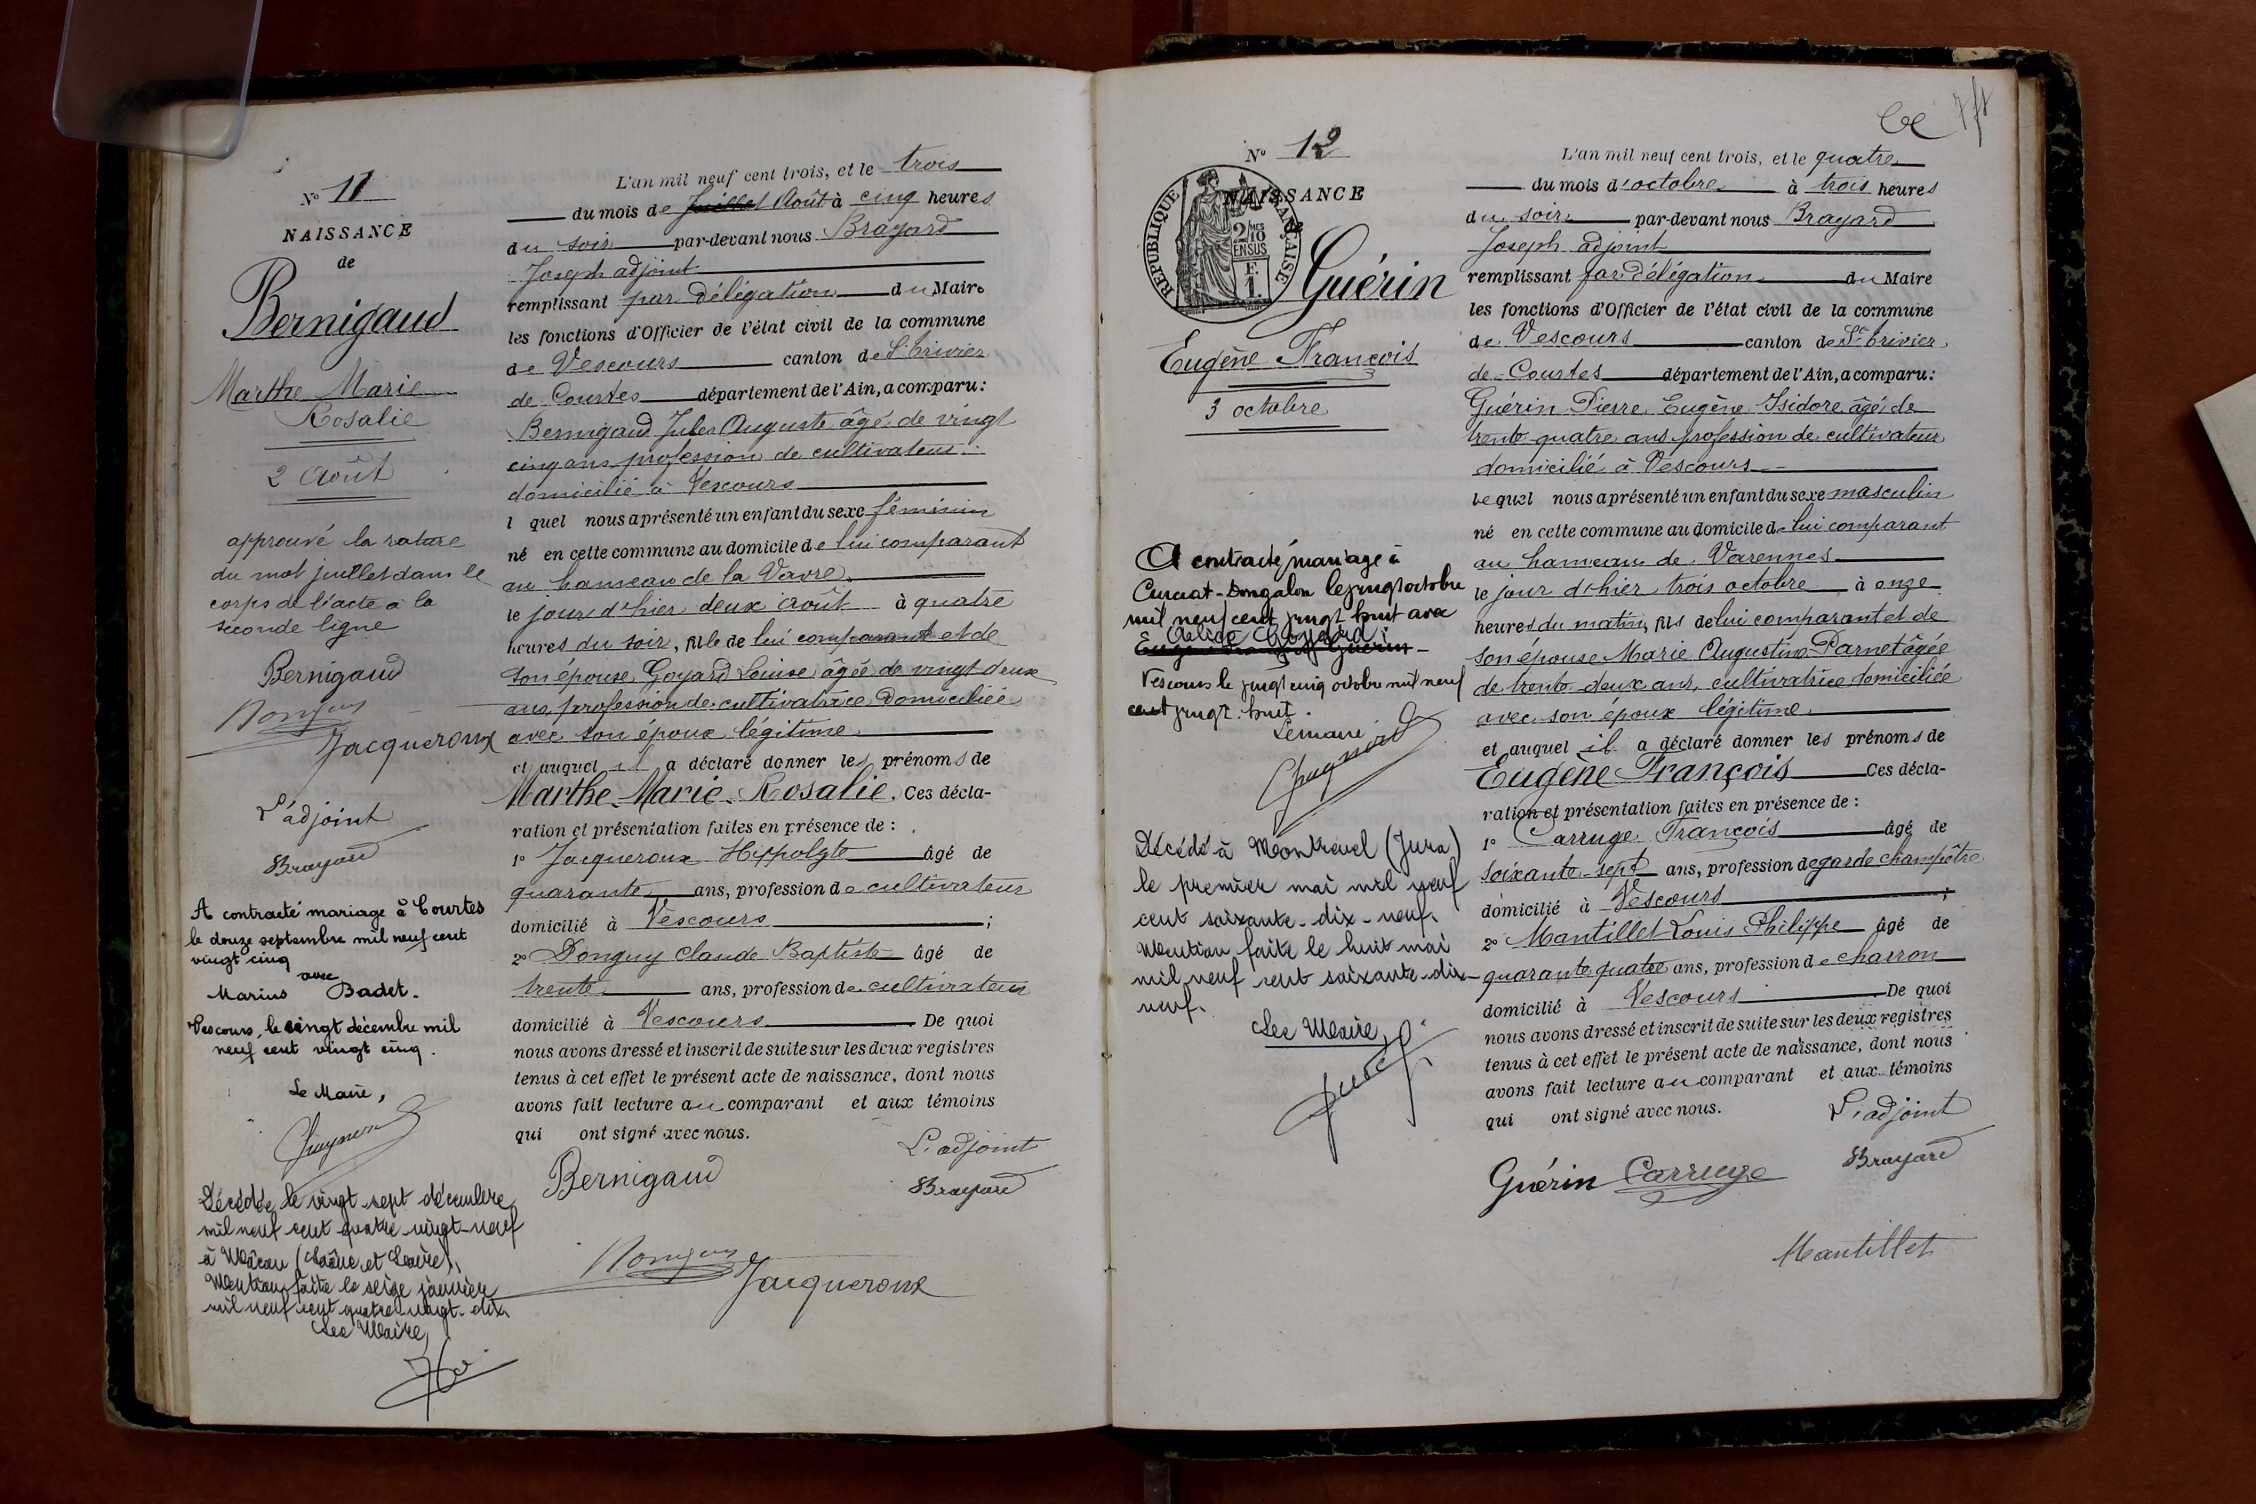 No 11
NAISSANCE
de
Bernigaud
Marthe Marie
Rosalie
2 Août
approuvé la rature
du mot juillet dans le
corps de l'acte à la
seconde ligne
Bernigaud
Jacqueroux
L'adjoint
Brayard
A contracté mariage à Courtes
le douze septembre mil neuf cent
vingt cinq
avec
Marius Badet.
Vescours, le vingt décembre mil
neuf cent vingt cinq.
Le Maire,
Décédée le vingt sept décembre
mil neuf cent quatre vingt-neuf
à Mâcon (Saône et Loire).
Mention faite le seize janvier
mil neuf cent quatre-vingt-dix
Le Maire,
L'an mil neuf cent trois, et le trois
du mois de juillet Août à cinq heures
du soir par-devant nous Brayard
Joseph adjoint
remplissant par délégation du Maire
les fonctions d'Officier de l'état civil de la commune
de Vescours canton de St Trivier
de Courtes département de l'Ain, a comparu :
Bernigaud Jules Auguste âgé de vingt
cinq ans profession de cultivateur
domicilié à Vescours
l quel nous a présenté un enfant du sexe féminin
né en cette commune au domicile de lui comparant
au hameau de la Vavre
le jour d'hier deux août à quatre
heures du soir, fille de lui comparant et de
son épouse Goyard Louise âgée de vingt deux
ans, profession de cultivatrice domiciliée
avec son époux légitime
et auquel il a déclaré donner les prénoms de
Marthe Marie Rosalie. Ces décla-
ration et présentation faites en présence de :
1º Jacqueroux Hippolyte âgé de
quarante ans, profession de cultivateur
domicilié à Vescours ;
2º Donguy Claude Baptiste âgé de
trente ans, profession de cultivateur
domicilié à Vescours De quoi
nous avons dressé et inscrit de suite sur les deux registres
tenus à cet effet le présent acte de naissance, dont nous
avons fait lecture au comparant et aux témoins
qui ont signé avec nous.
L'adjoint
Bernigaud
Brayard
Jacqueroux
No 12
NAISSANCE
REPUBLIQUE FRANÇAISE
2/10 EN SUS
F. 1.
Guérin
Eugène François
3 octobre
A contracté mariage à
Curciat-Dongalon le vingt octobre
mil neuf cent vingt huit avec
Vescours le vingt cinq octobre mil neuf
cent vingt-huit.
Le maire
Décédé à Montrevel (Jura)
le premier mai mil neuf
cent soixante-dix-neuf.
Mention faite le huit mai
mil neuf cent soixante-dix-
neuf.
Le Maire,
L'an mil neuf cent trois, et le quatre
du mois d'octobre à trois heures
du soir par-devant nous Brayard
Joseph adjoint
remplissant par délégation du Maire
les fonctions d'Officier de l'état civil de la commune
de Vescours canton de St Trivier
de Courtes département de l'Ain, a comparu :
Guérin Pierre Eugène Isidore âgé de
trente quatre ans profession de cultivateur
domicilié à Vescours
lequel nous a présenté un enfant du sexe masculin
né en cette commune au domicile de lui comparant
au hameau de Varennes
le jour d'hier trois octobre à onze
heures du matin, fils de lui comparant et de
son épouse Marie Augustine Parnet âgée
de trente deux ans, cultivatrice domiciliée
avec son époux légitime
et auquel il a déclaré donner les prénoms de
Eugène François Ces décla-
ration et présentation faites en présence de :
1º Carruge François âgé de
soixante-sept ans, profession de garde champêtre
domicilié à Vescours ;
2º Mantillet Louis Philippe âgé de
quarante quatre ans, profession de charron
domicilié à Vescours De quoi
nous avons dressé et inscrit de suite sur les deux registres
tenus à cet effet le présent acte de naissance, dont nous
avons fait lecture au comparant et aux témoins
qui ont signé avec nous.
L'adjoint
Guérin Carruge Brayard
Mantillet